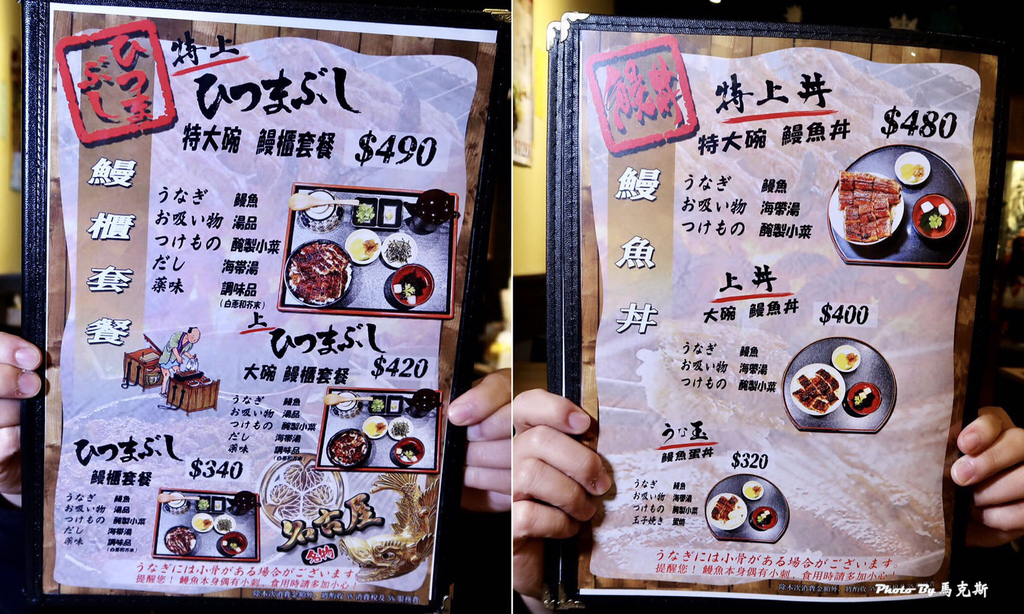 ひつま
ぶし
特上
ひつまぶし
特大碗 鰻櫃套餐 $490
鰻櫃套餐
うなぎ 鰻魚
お吸い物 湯品
つけもの 醃製小菜
だし 海帶湯
薬味 調味品
(白蔥和芥末)
上
ひつまぶし
大碗 鰻櫃套餐 $420
うなぎ 鰻魚
お吸い物 湯品
つけもの 醃製小菜
だし 海帶湯
薬味 調味品
(白蔥和芥末)
ひつまぶし
鰻櫃套餐 $340
うなぎ 鰻魚
お吸い物 湯品
つけもの 醃製小菜
だし 海帶湯
薬味 調味品
(白蔥和芥末)
名古屋
うなぎには小骨がある場合がございます。
提醒您！鰻魚本身偶有小刺，食用時請多加小心！
鰻丼
特上丼
特大碗 鰻魚丼 $480
鰻魚丼
うなぎ 鰻魚
お吸い物 海帶湯
つけもの 醃製小菜
上丼
大碗 鰻魚丼 $400
うなぎ 鰻魚
お吸い物 海帶湯
つけもの 醃製小菜
うな玉
鰻魚蛋丼 $320
うなぎ 鰻魚
お吸い物 海帶湯
つけもの 醃製小菜
玉子焼き 蛋燒
うなぎには小骨がある場合がございます。
提醒您！鰻魚本身偶有小刺，食用時請多加小心！
Photo By 馬克斯